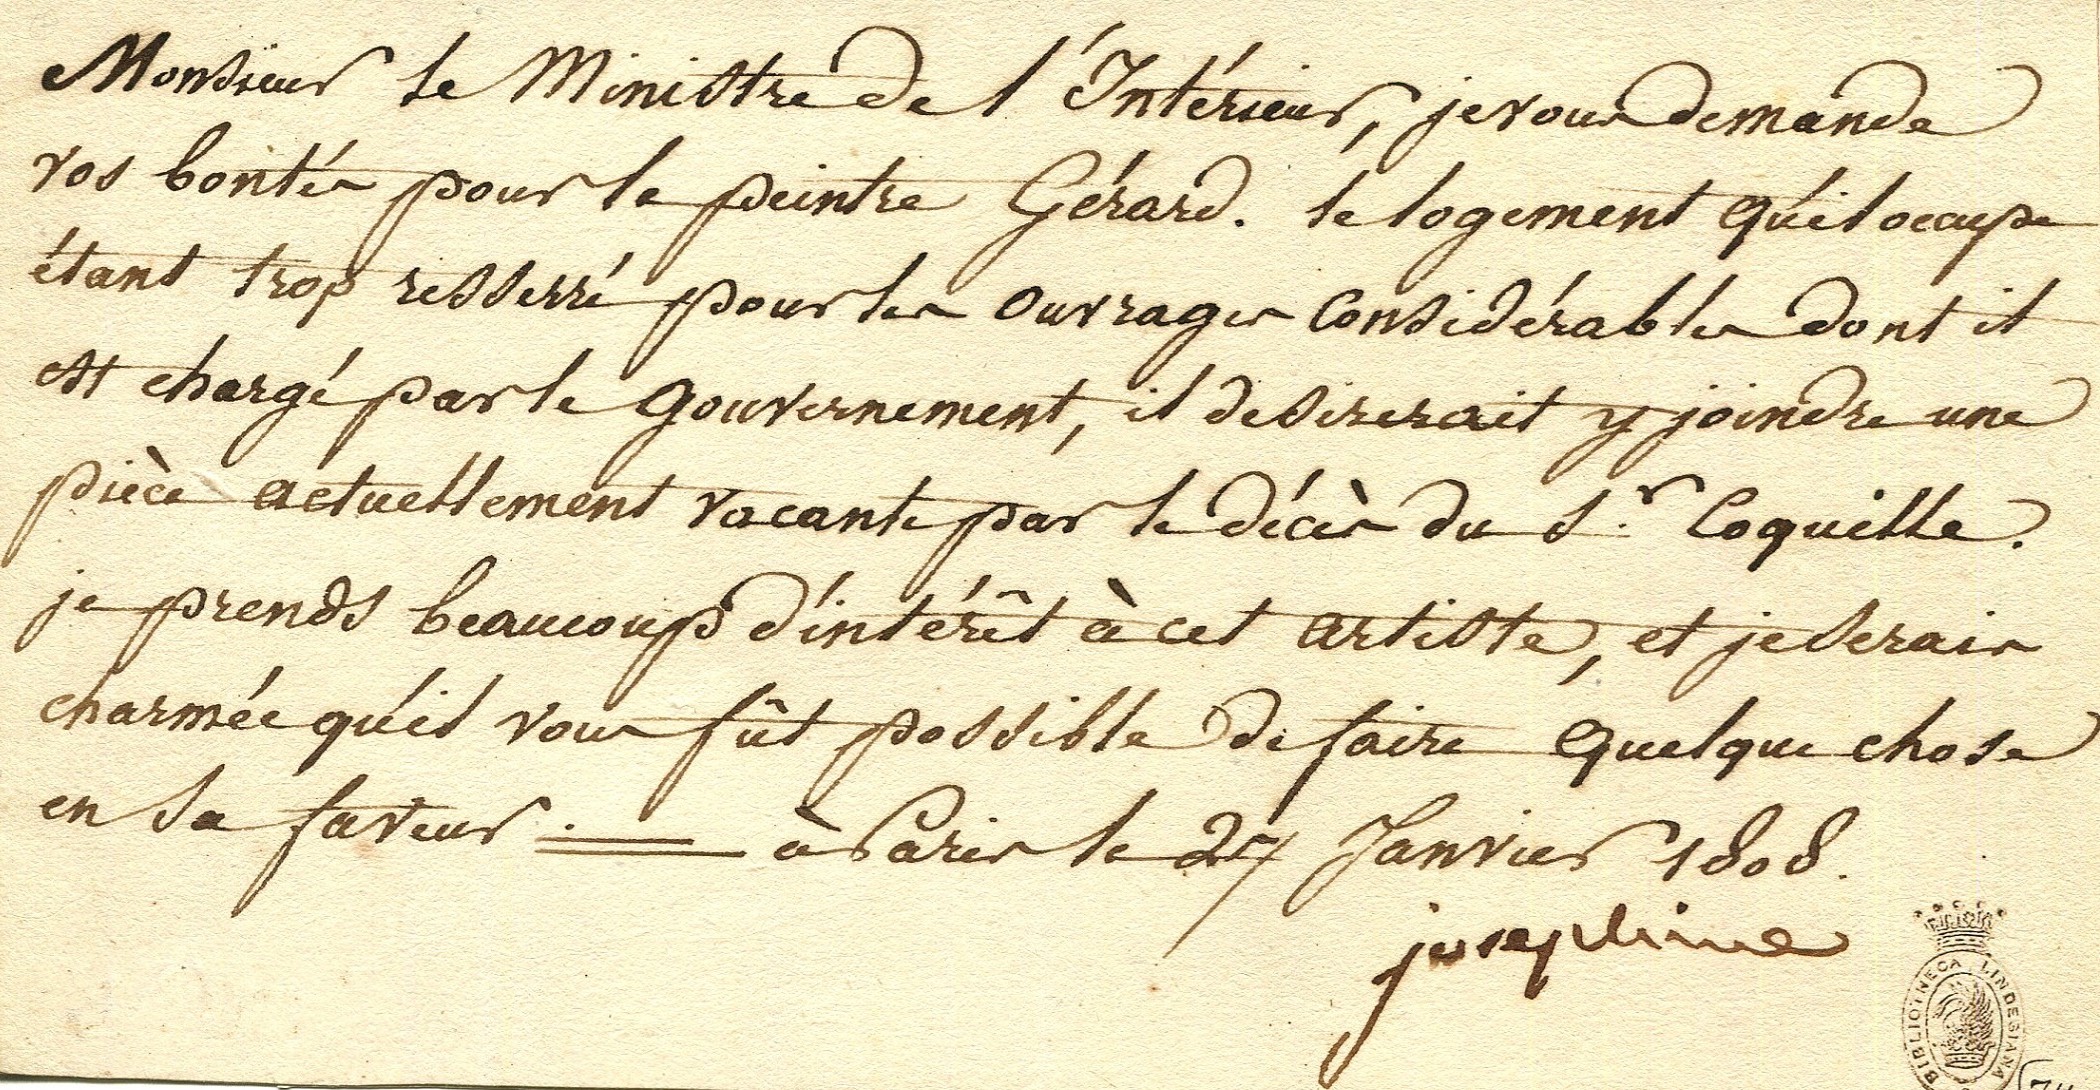 Monsieur le Ministre de l'Intérieur, je vous demande
vos bontés pour le peintre Gérard. le logement qu'il occupe
étant trop resserré pour les ouvrages considérables dont il
est chargé par le gouvernement, il desirerait y joindre une
pièce actuellement vacante par le décès du S.r Coquille.
je prends beaucoup d'intérêt à cet artiste, et je serais
charmée qu'il vous fût possible de faire quelque chose
en sa faveur. à Paris le 27 Janvier 1808.
josephine
BIBLIOTHECA LINDESIANA